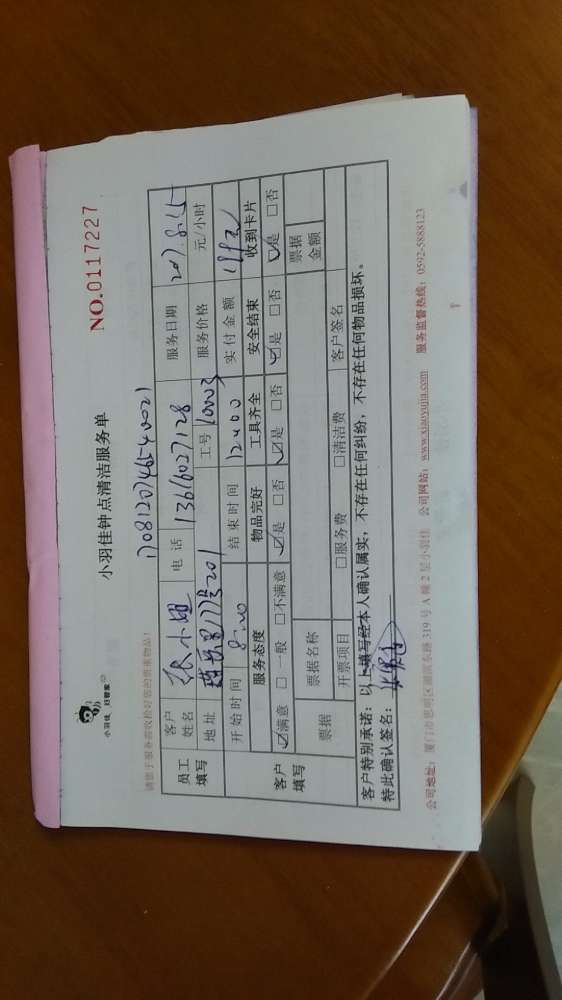 小羽佳 好管家
小羽佳钟点清洁服务单
NO.0117227
请您于服务前收检好您的贵重物品!
1708120746540021
员工填写 客户姓名 张小姐 电话 13616027128 服务日期 2017.8.15
地址 号201 工号 10003 服务价格 元/小时
开始时间 8:00 结束时间 12:00 实付金额
客户填写 服务态度 物品完好 工具齐全 安全结束 收到卡片
☑满意 □一般 □不满意 ☑是 □否 ☑是 □否 ☑是 □否 ☑是 □否
票据 票据名称 票据金额
开票项目 □服务费 □清洁费 客户签名
客户特别承诺:以上填写经本人确认属实,不存在任何纠纷,不存在任何物品损坏。
特此确认签名:
公司地址:厦门市思明区湖滨东路319号A幢2层小羽佳 公司网站:www.xiaoyujia.com 服务监督热线:0592-5888123